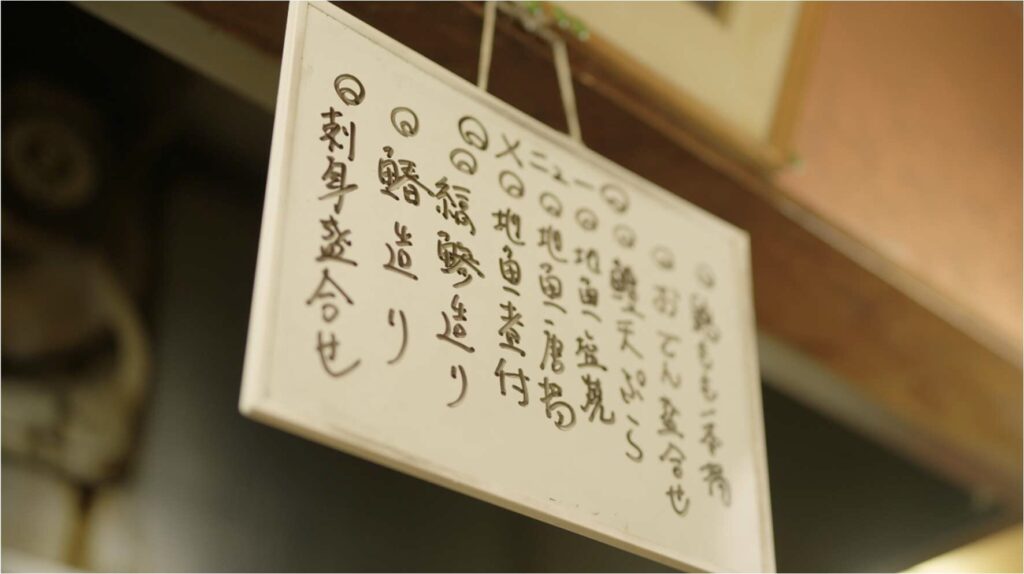 ◎メニュー◎
◎鶏もも一本揚
◎おでん盛合せ
◎天ぷら
◎地魚塩焼
◎地魚唐揚
◎地魚煮付
◎縞鯵造り
◎造り
◎刺身盛合せ